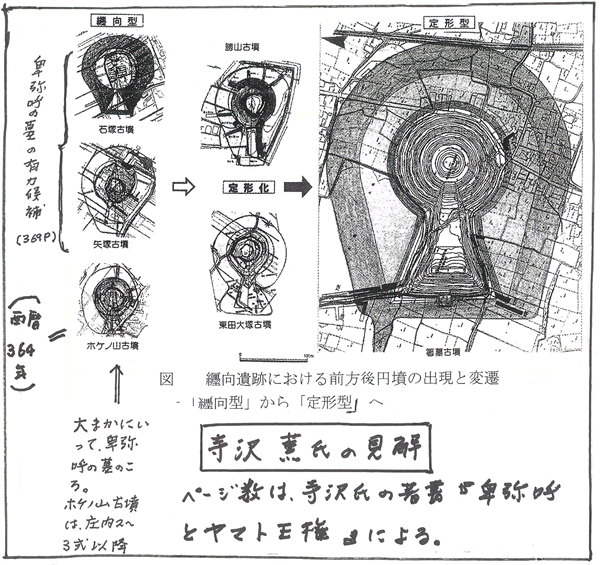 纒向型
定形型
勝山古墳
石塚古墳
定形化
矢塚古墳
ホケノ山古墳
東田大塚古墳
箸墓古墳
100m
卑弥呼の墓の有力候補
(369P)
(西暦
364
年)
図 纒向遺跡における前方後円墳の出現と変遷
-「纒向型」から「定形型」へ
大まかにい
って、卑弥
呼の墓のこ
ろ。
ホケノ山古墳
は、庄内2〜
3式以降
寺沢 薫氏の見解
ページ数は、寺沢氏の著書『卑弥呼
とヤマト王権』による。